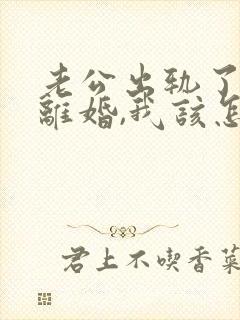 老公出轨了
離婚,我該怎
君上不喫香菜